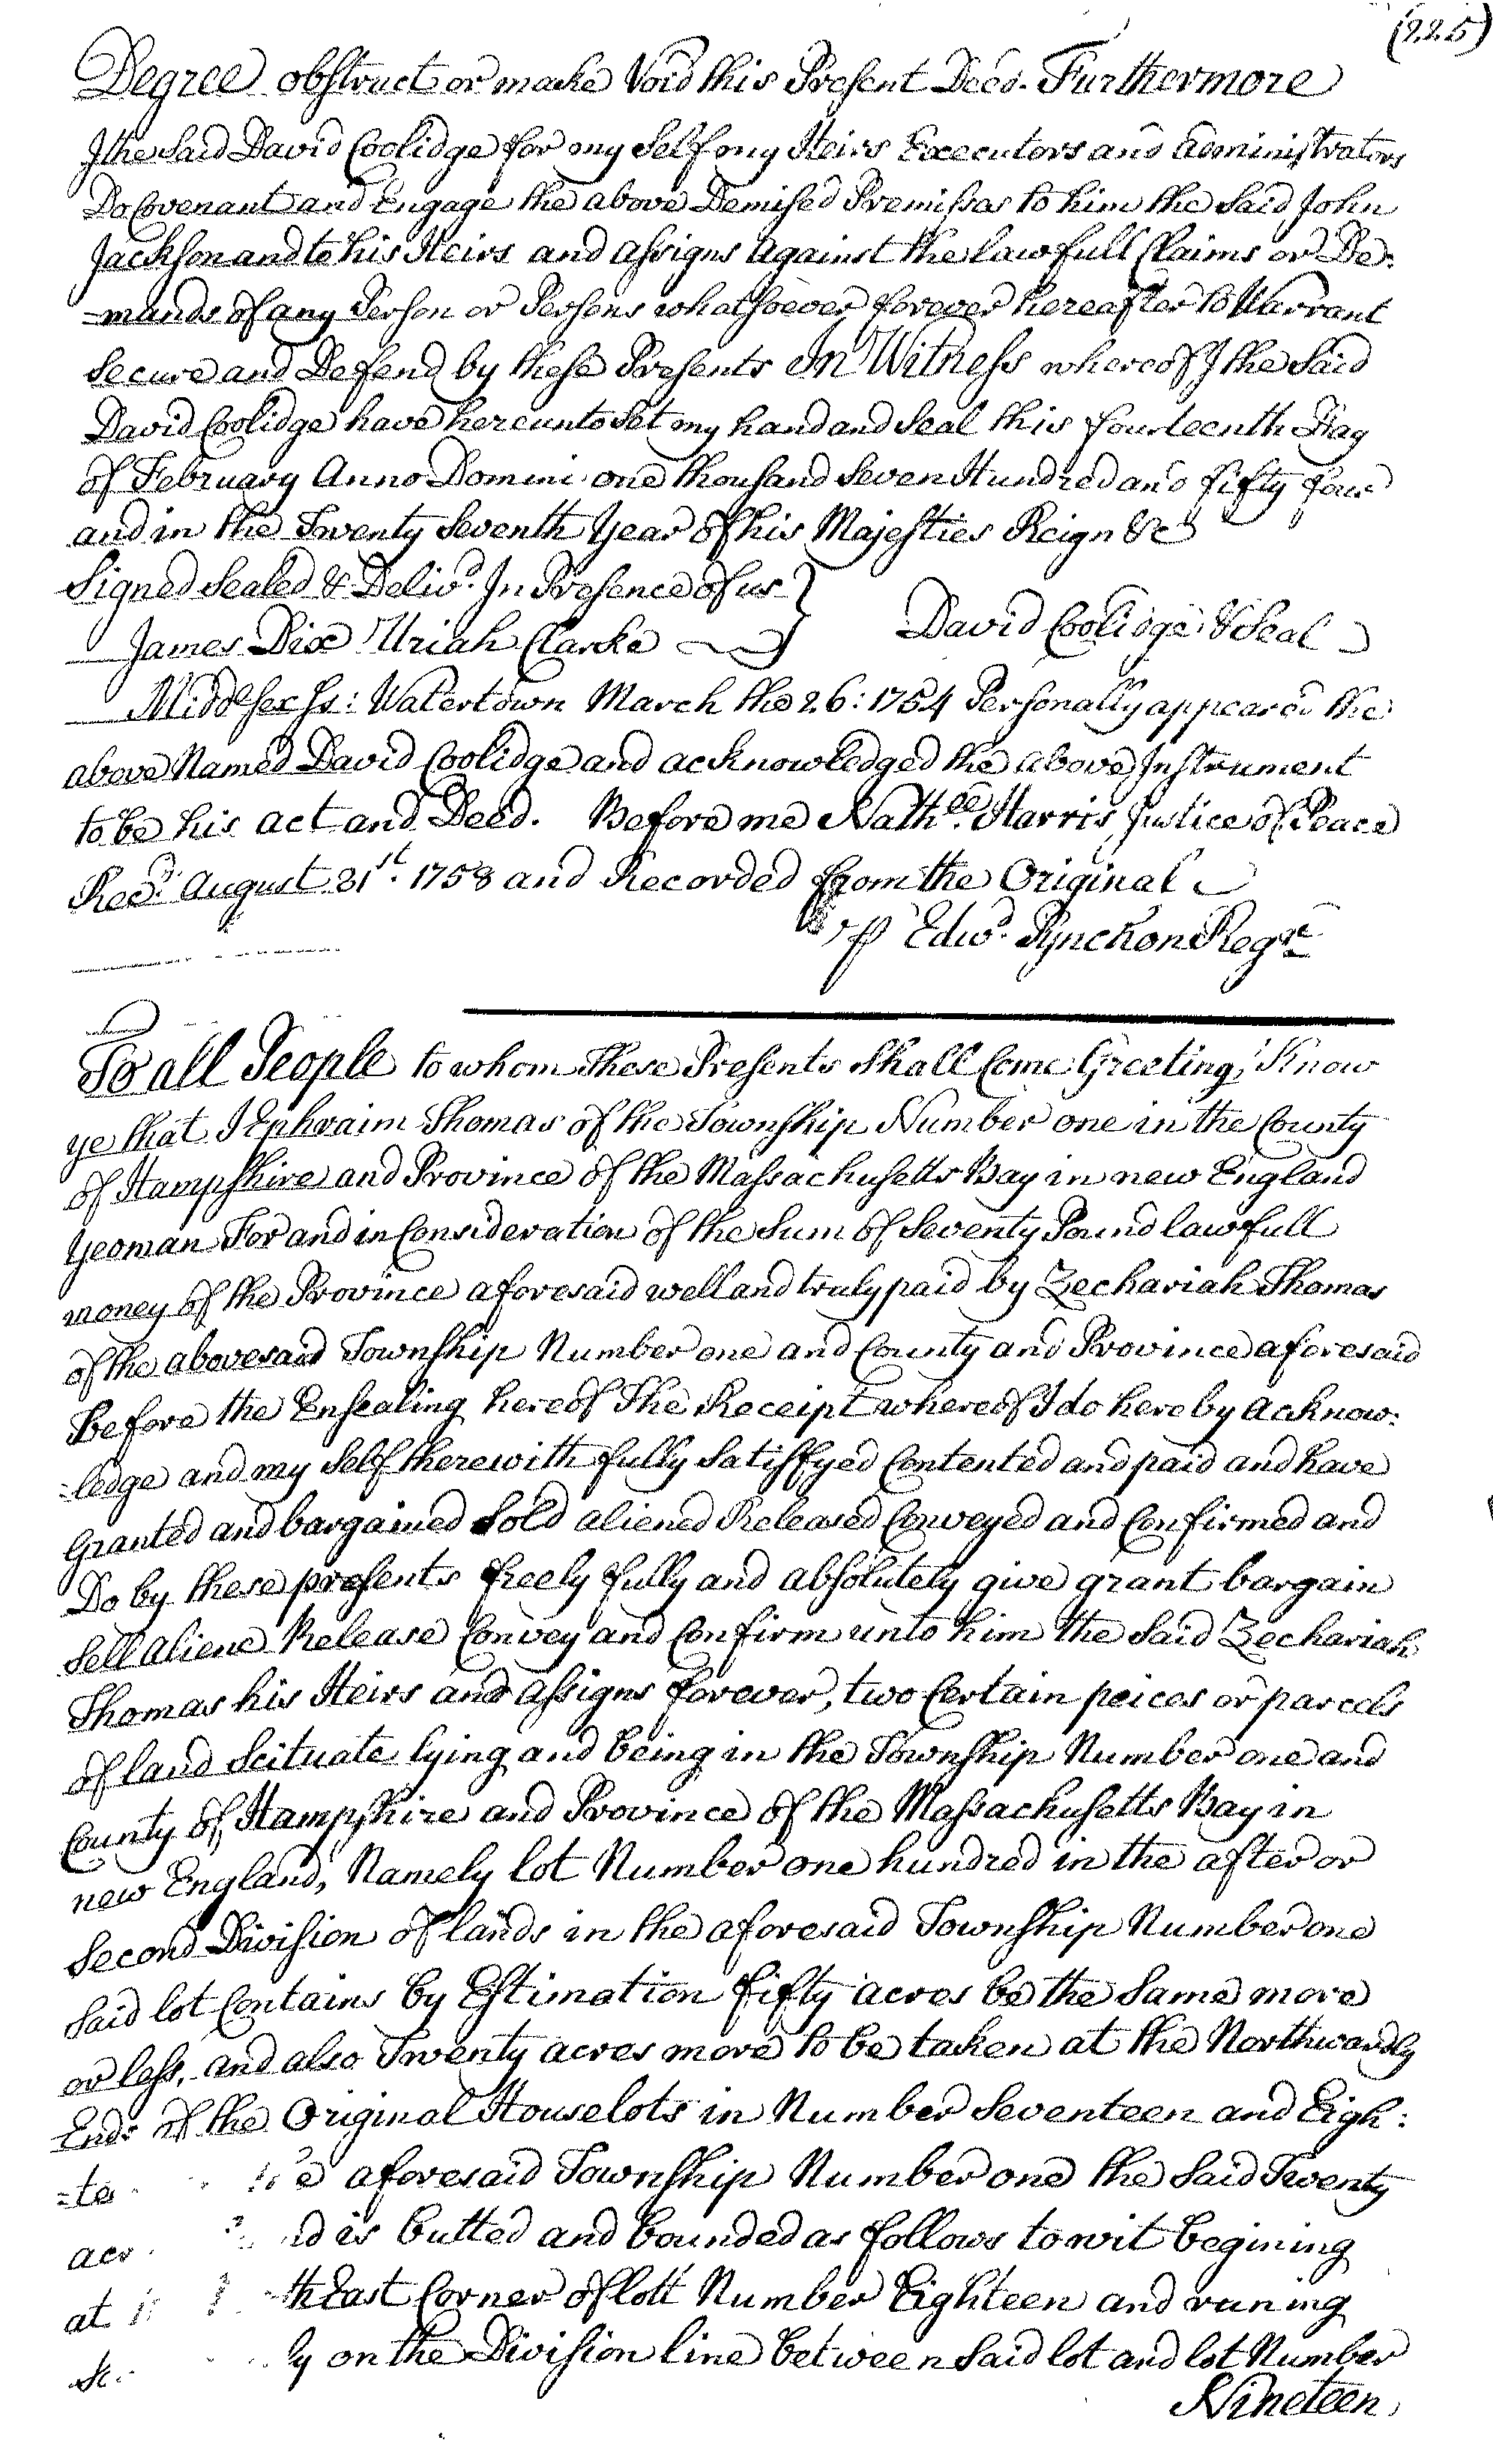 (225)
Degree obstruct or make Void this Present Deed. Furthermore
I the Said David Coolidge for my Self my Heirs Executors and Administrators
Do Covenant and Engage the above Demised Premisses to him the Said John
Jackson and to his Heirs and assigns Against the lawfull Claims or De-
-mands of any Person or Persons whatsoever forever hereafter to Warrant
Secure and Defend by these Presents In Witness whereof I the Said
David Coolidge have hereunto Set my hand and Seal this fourteenth Day
of February Anno Domini one thousand Seven Hundred and fifty four
and in the Twenty Seventh Year of his Majesties Reign &c
Signed Sealed & Delivd. In Presence of us
James Dix Uriah Clarke
David Coolidge & Seal
Middlesex Ss: Watertown March the 26: 1754 Personally appeared the
above Named David Coolidge and acknowledged the above Instrument
to be his act and Deed. Before me Nathll. Harris Justice of Peace
Recd. August 31st. 1758 and Recorded from the Original
p Edwd. Pynchon Regr
To all People to whom These Presents Shall Come Greeting, Know
ye that I Ephraim Thomas of the Township Number one in the County
of Hampshire and Province of the Massachusetts Bay in new England
Yeoman For and in Consideration of the Sum of Seventy Pound lawfull
money of the Province aforesaid well and truly paid by Zechariah Thomas
of the abovesaid Township Number one and County and Province aforesaid
Before the Ensealing hereof The Receipt whereof I do hereby acknow:
-ledge and my Self therewith fully Satisfyed Contented and paid and have
Granted and bargained Sold aliened Released Conveyed and Confirmed and
Do by these presents freely fully and absolutely give grant bargain
Sell aliene Release Convey and Confirm unto him the Said Zechariah
Thomas his Heirs and assigns forever, two Certain peices or parcels
of land Scituate lying and being in the Township Number one and
County of Hampshire and Province of the Massachusetts Bay in
new England, Namely lot Number one hundred in the after or
Second Division of lands in the aforesaid Township Number one
Said lot Contains by Estimation fifty acres be the Same more
or less, and also Twenty acres more to be taken at the Northwardly
Ends of the Original Houselots in Number Seventeen and Eigh:
=te e aforesaid Township Number one the Said Twenty
acr d is butted and bounded as follows to wit begining
at th East Corner of lott Number Eighteen and runing
ly on the Division line between Said lot and lot Number
Nineteen